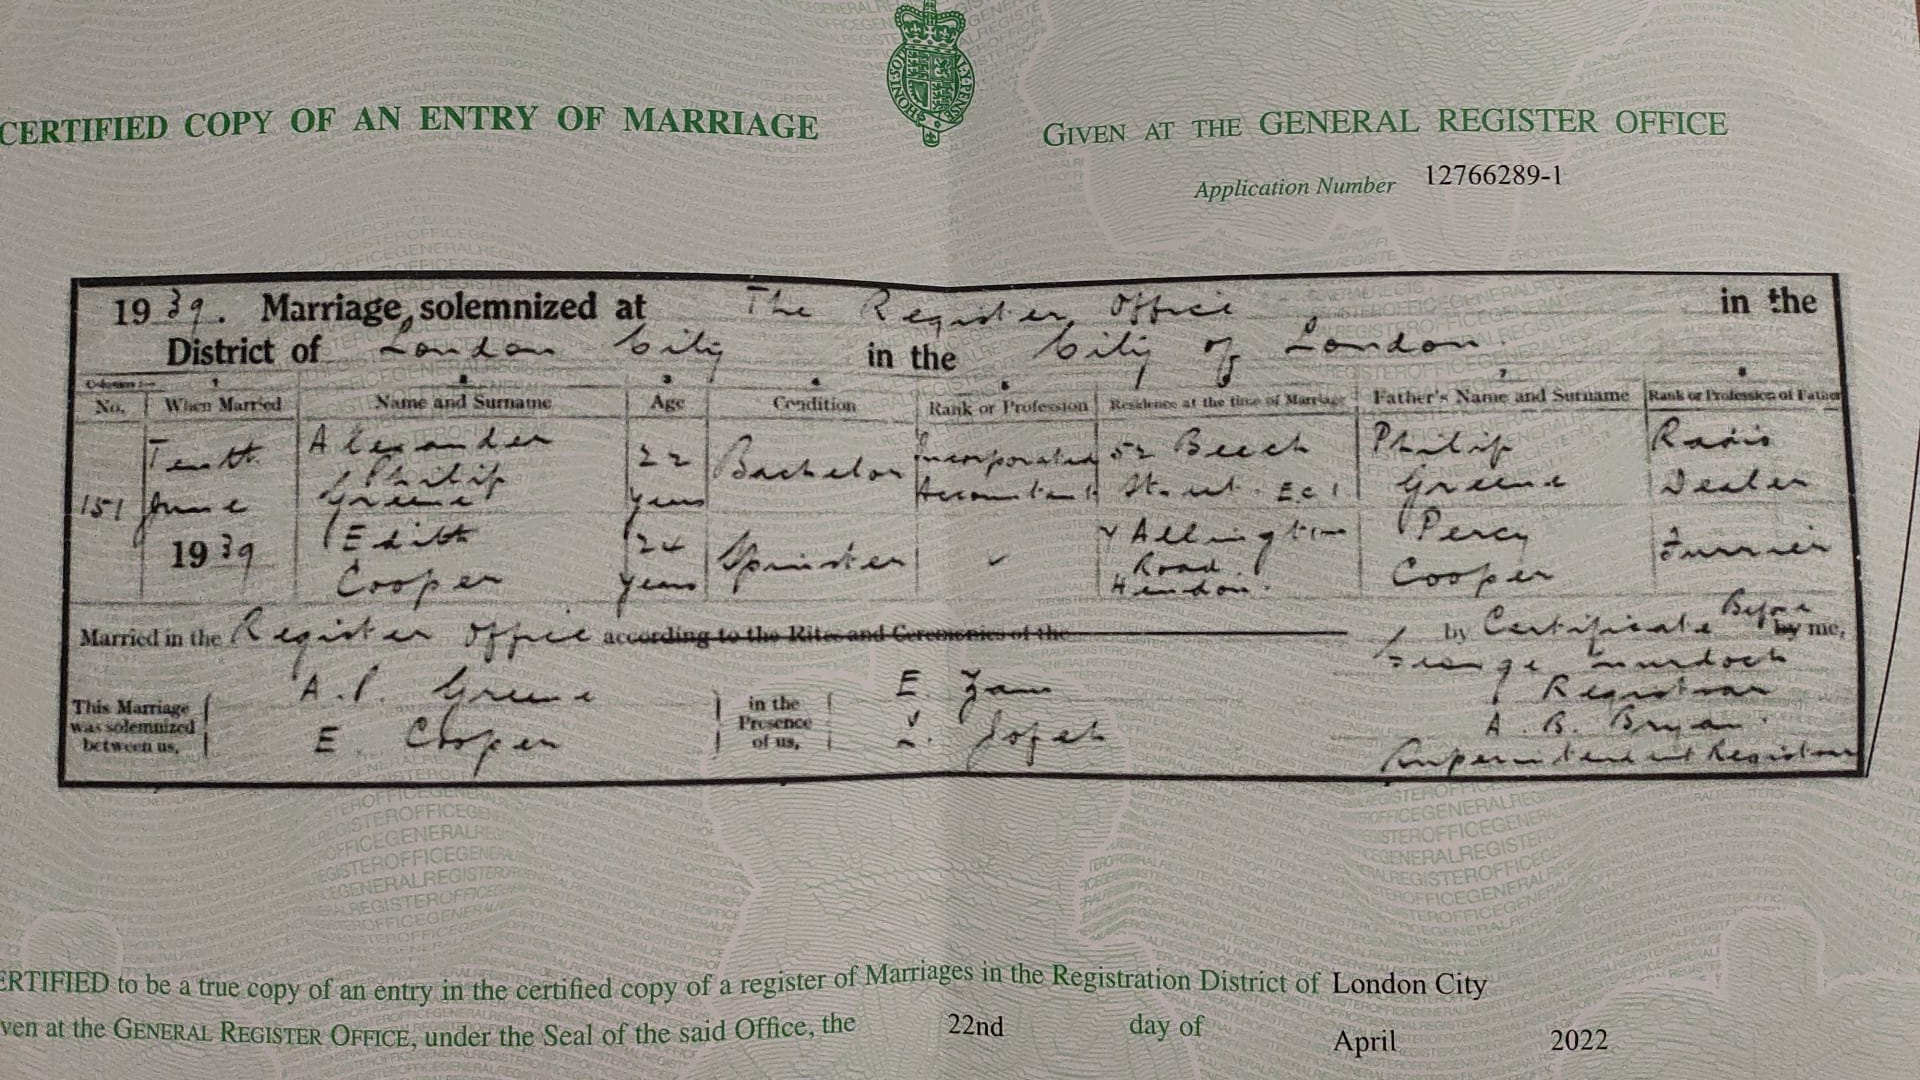 CERTIFIED COPY OF AN ENTRY OF MARRIAGE
GIVEN AT THE GENERAL REGISTER OFFICE
Application Number 12766289-1
1939. Marriage solemnized at The Register Office in the
District of London City in the City of London
Columns :— 1 2 3 4 5 6 7 8
No. When Married Name and Surname Age Condition Rank or Profession Residence at the time of Marriage Father's Name and Surname Rank or Profession of Father
151 Tenth June 1939
Alexander Philip Greene 22 years Bachelor Incorporated Accountant 52 Beech Street E.C.1 Philip Greene Radio Dealer
Edith Cooper 24 years Spinster Allington Road Hendon Percy Cooper Furrier
Married in the Register Office according to the Rites and Ceremonies of the by Certificate Before by me,
This Marriage was solemnized between us,
A. P. Greene
E. Cooper
in the Presence of us,
E.
George Murdoch
Registrar
A. B. Bryan
Superintendent Registrar
ERTIFIED to be a true copy of an entry in the certified copy of a register of Marriages in the Registration District of London City
ven at the GENERAL REGISTER OFFICE, under the Seal of the said Office, the 22nd day of April 2022